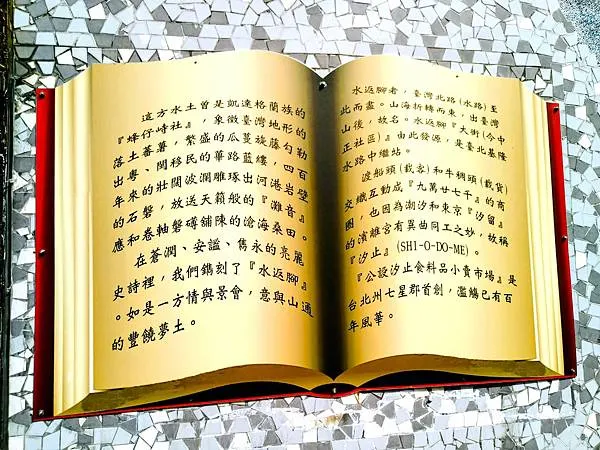 這方水土曾是凱達格蘭族的
『蜂仔峙社』,象徵臺灣地形的
落土蕃薯,繁盛的瓜蔓旋藤勾勒
出粵、閩移民的篳路藍縷,四百
年來的壯闊波瀾雕琢出河港岩壁
的石磐,放送天籟般的『灘音』。
應和卷軸磐礡舖陳的滄海桑田。
在蒼潤、安謐、雋永的亮麗
史詩裡,我們鐫刻了『水返腳』
。如是一方情與景會,意與山通
的豐饒夢土。
水返腳者,臺灣北路(水路)至
此而盡。山海折轉而東,出臺灣
山後,故名。水返腳『大街(今中
正社區)』由此發源,是臺北基隆
水路中繼站。
渡船頭(載客)和牛稠頭(載貨)
交織互動成『九萬廿七千』的商
圈,也因為潮汐和東京『汐留』
的濱離宮有異曲同工之妙,故稱
『汐止』(SHI-O-DO-ME)。
『公設汐止食料品小賣市場』是
台北州七星郡首創,濫觴已有百
年風華。